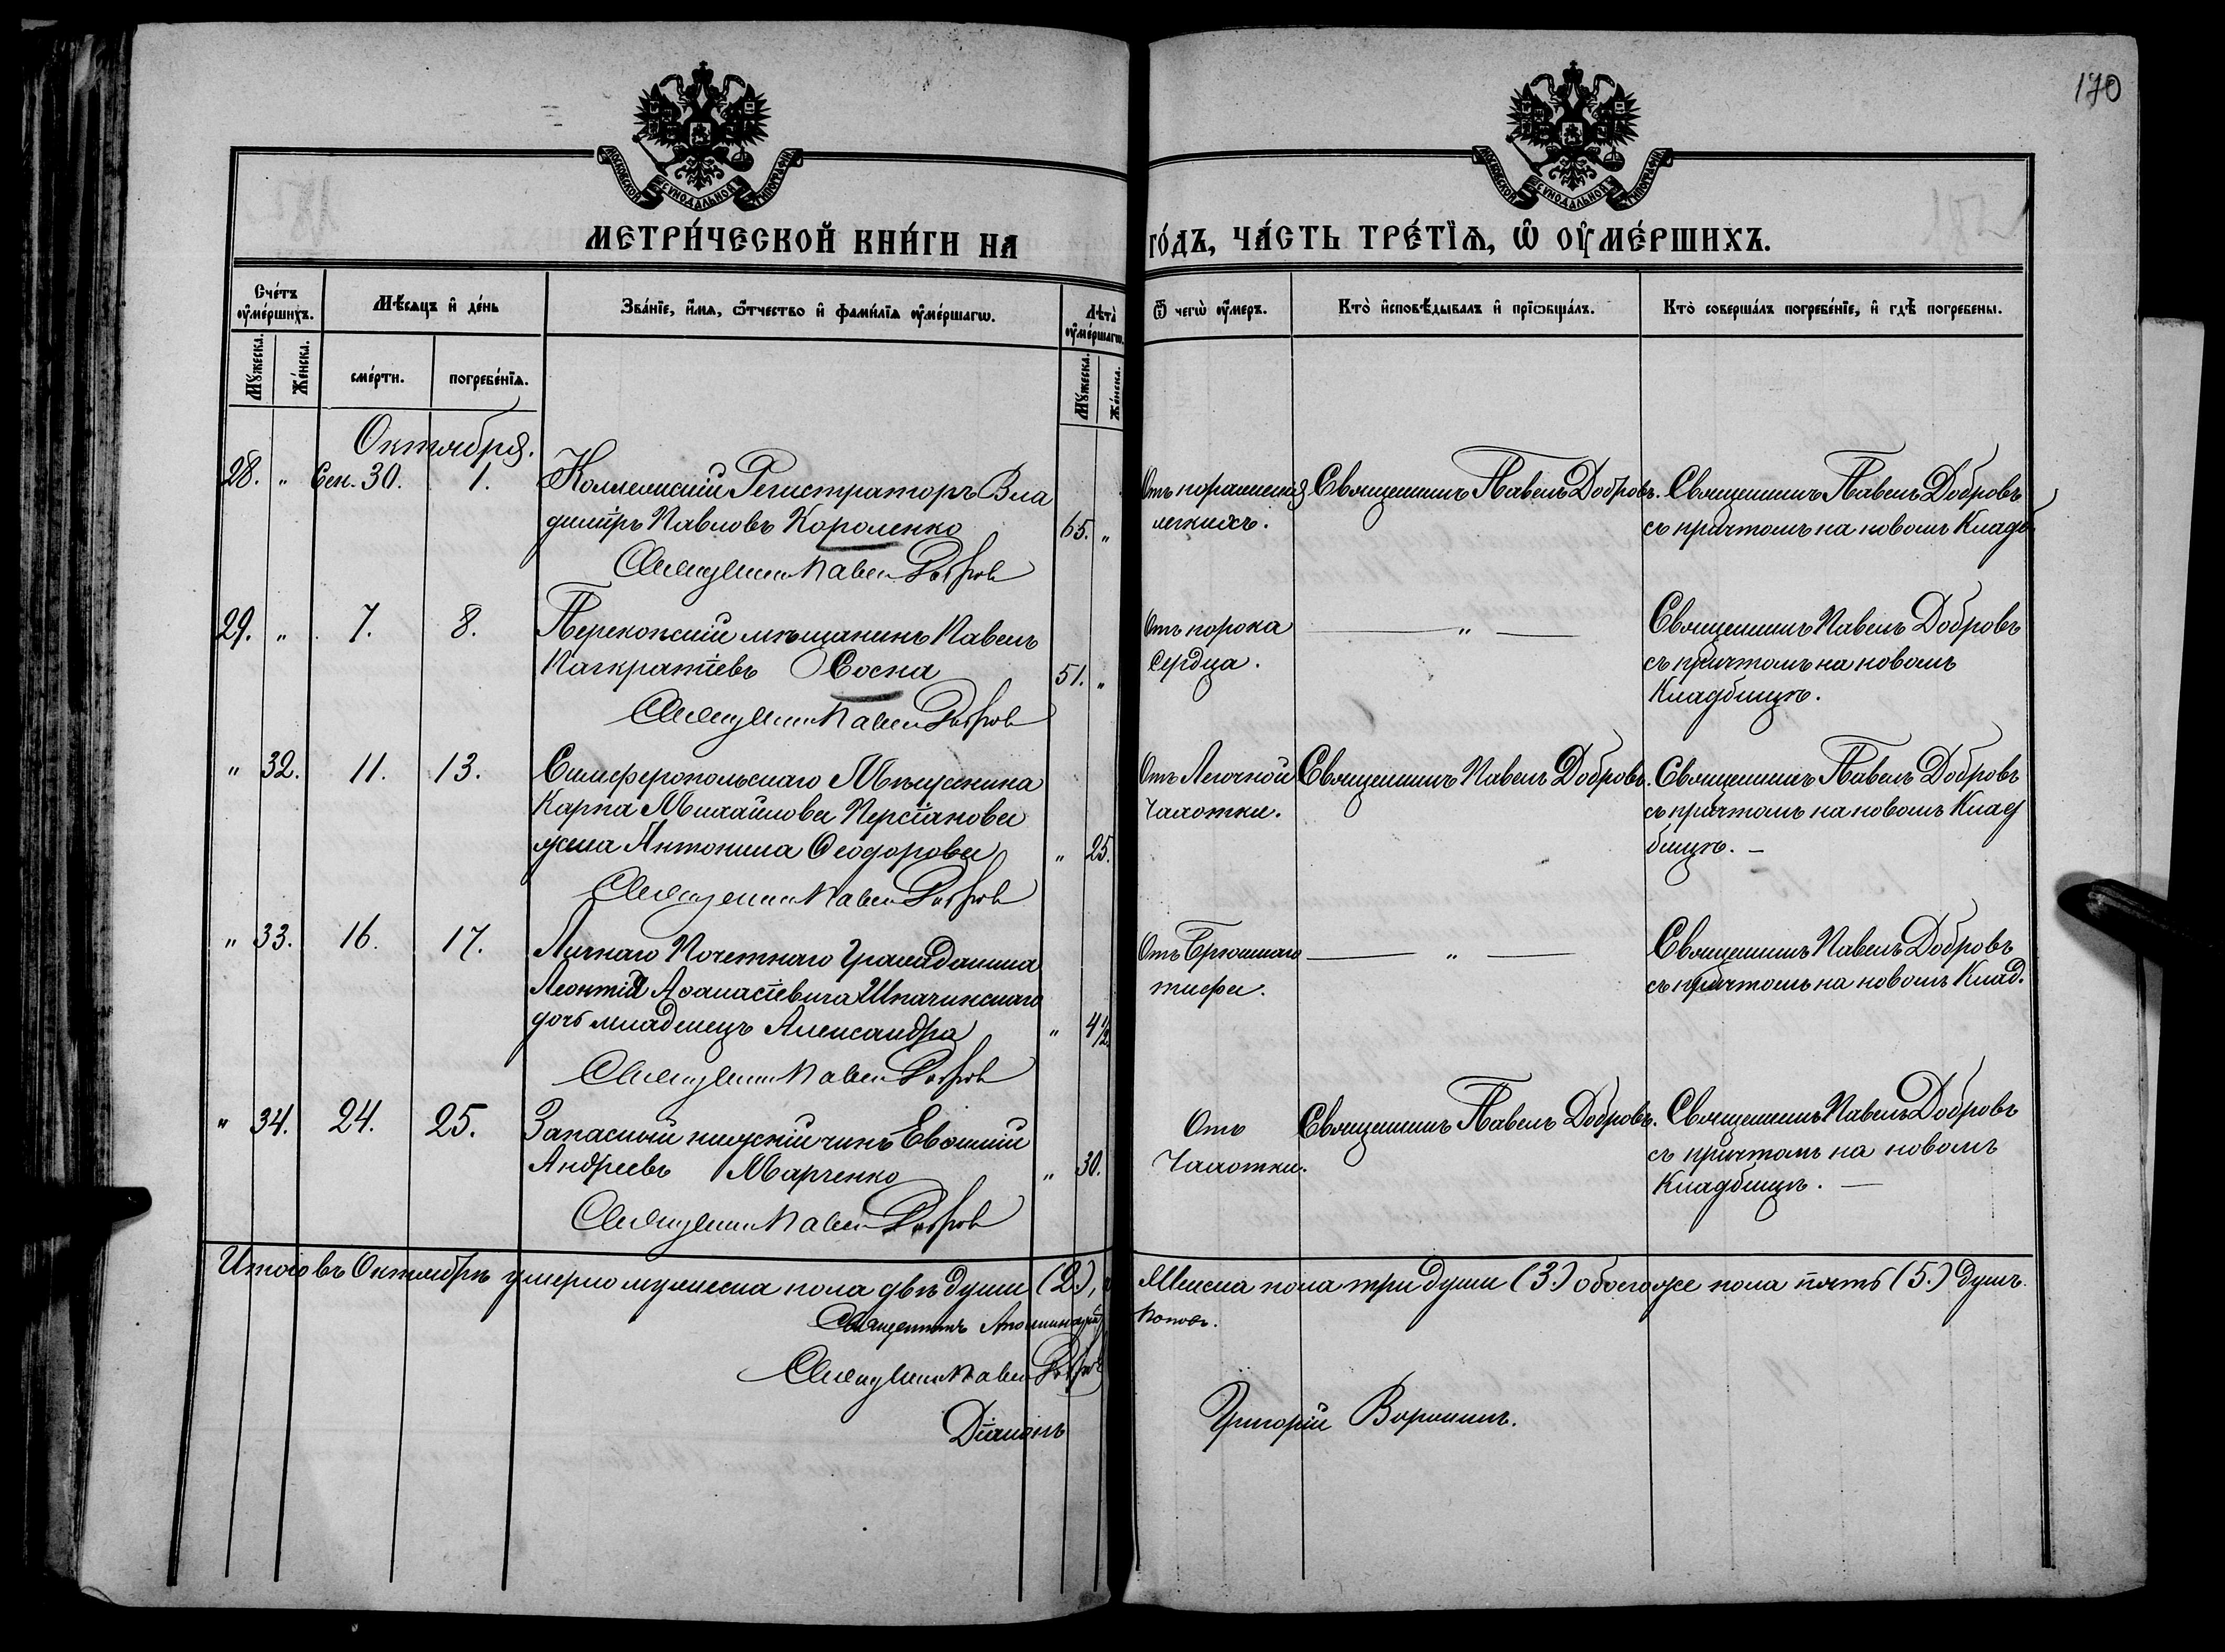 170
МОСКОВСКОЙ СѴНОДАЛЬНОЙ ТИПОГРАФІИ
МОСКОВСКОЙ СѴНОДАЛЬНОЙ ТИПОГРАФІИ
МЕТРИ́ЧЕСКОЙ КНИ́ГИ НА
ГО́ДЪ, ЧА́СТЬ ТРЕ́ТІѦ, Ѡ ОУ҆МЕ́РШИХЪ.
Сче́тъ оу҆ме́ршихъ.
Мѣ́сяцъ и҆ де́нь
Зва́нїе, и҆́мѧ, ѻ҆́тчество и҆ фами́лїѧ оу҆ме́ршагѡ.
Лѣ́та оу҆ме́ршагѡ.
Ѿ чегѡ̀ оу҆́меръ.
Кто̀ и҆сповѣ́дывалъ и҆ прїѡбща́лъ.
Кто̀ соверша́лъ погребе́нїе, и҆ гдѣ̀ погребены.
Мꙋ́жеска.
Же́нска.
сме́рти.
погребе́нїѧ.
Мꙋ́жеска.
Же́нска.
Октября.
28. " Сен. 30. 1. Коллежскій Регистраторъ Вла
димiръ Павловъ Короленко 65. "
Священникъ Павелъ Добровъ
Отъ пораженія
легкихъ.
Священникъ Павелъ Добровъ.
Священникъ Павелъ Добровъ
съ причтомъ на новомъ Кладб
29. " 7. 8. Перекопскій мѣщанинъ Павелъ
Панкратіевъ Сосна 51. "
Священникъ Павелъ Добровъ
Отъ порока
Сердца.
— " —
Священникъ Павелъ Добровъ
съ причтомъ на новомъ
Кладбищѣ.
" 32. 11. 13. Симферопольскаго Мѣщанина
Карпа Михайлова Персіанова
жена Антонина Ѳеодорова " 25.
Священникъ Павелъ Добровъ
Отъ Легочной
Чахотки.
Священникъ Павелъ Добровъ.
Священникъ Павелъ Добровъ
съ причтомъ на новомъ Клад
бищѣ. —
" 33. 16. 17. Личнаго Почетнаго Гражданина
Леонтія Аѳанасіевича Шпачинскаго
дочь младенецъ Александра " 4 1/2.
Священникъ Павелъ Добровъ
Отъ Брюшнаго
тифа.
— " —
Священникъ Павелъ Добровъ
съ причтомъ на новомъ Клад.
" 34. 24. 25. Запасный нижній чинъ Евѳимій
Андреевъ Марченко " 30.
Священникъ Павелъ Добровъ
Отъ
Чахотки.
Священникъ Павелъ Добровъ.
Священникъ Павелъ Добровъ
съ причтомъ на новомъ
Кладбищѣ. —
Итого въ Октябрѣ умерло мужеска пола двѣ души (2), а женска пола три души (3) обоего же пола пять (5.) душъ.
Священникъ Аполлинарій Поповъ.
Священникъ Павелъ Добровъ
Діаконъ Григорій